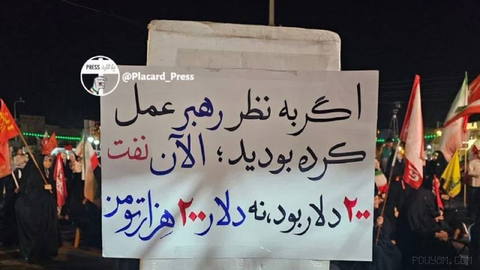 PRESS
@Placard_Press
اگر به نظر رهبر عمل
کرده بودید؛ الآن نفت
۲۰۰ دلار بود، نه دلار ۲۰۰ هزار تومن
POUYAM.COM